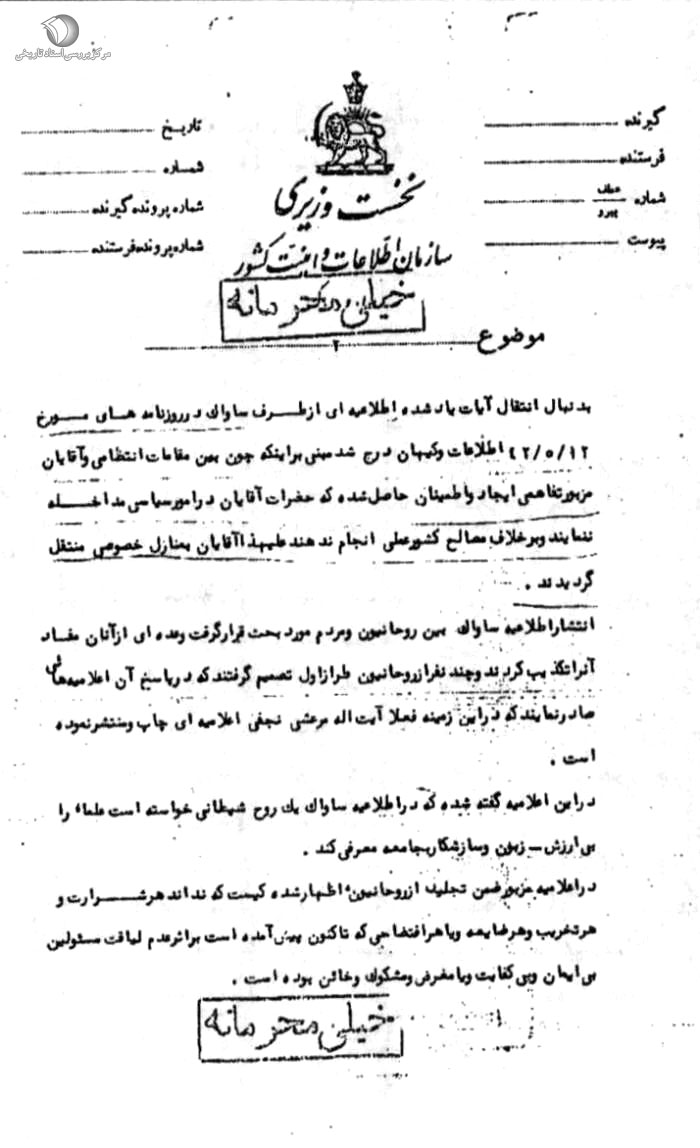 مرکز بررسی اسناد تاریخی
گیرنده
فرستنده
شماره عطف پیرو
پیوست
تاریخ
شماره
شماره پرونده گیرنده
شماره پرونده فرستنده
نخست وزیری
سازمان اطلاعات و امنیت کشور
خیلی محرمانه
موضوع
۲
بدنبال انتقال آیات یاد شده اطلاعیه ای از طرف ساواك در روزنامه های مورخ
۴۲/۵/۱۲ اطلاعات وکیهان درج شد مبنی براینکه چون بین مقامات انتظامی وآقایان
مزبور تفاهمی ایجاد واطمینان حاصل شده که حضرات آقایان در امور سیاسی مداخله
ننمایند وبرخلاف مصالح کشور عملی انجام ندهند علیهذا آقایان بمنازل خصوصی منتقل
گردیدند .
انتشار اطلاعیه ساواك بین روحانیون ومردم مورد بحث قرار گرفت وعده ای از آنان مفاد
آنرا تکذیب کردند وچند نفر از روحانیون طراز اول تصمیم گرفتند که در پاسخ آن اعلامیه هائی
صادر نمایند که در این زمینه فعلا آیت اله مرعشی نجفی اعلامیه ای چاپ ومنتشر نموده
است .
در این اعلامیه گفته شده که در اطلاعیه ساواك یك روح شیطانی خواسته است علماء را
بی ارزش ــ زبون وسازشکار بجامعه معرفی کند .
در اعلامیه مزبور ضمن تجلیل از روحانیون اظهار شده کیست که نداند هر شرارت و
هر تخریب وهر ضایعه ویا هر افتضاحی که تاکنون پیش آمده است بر اثر عدم لیاقت مسئولین
بی ایمان وبی کفایت ویا مغرض ومشکوك وخائن بوده است .
خیلی محرمانه